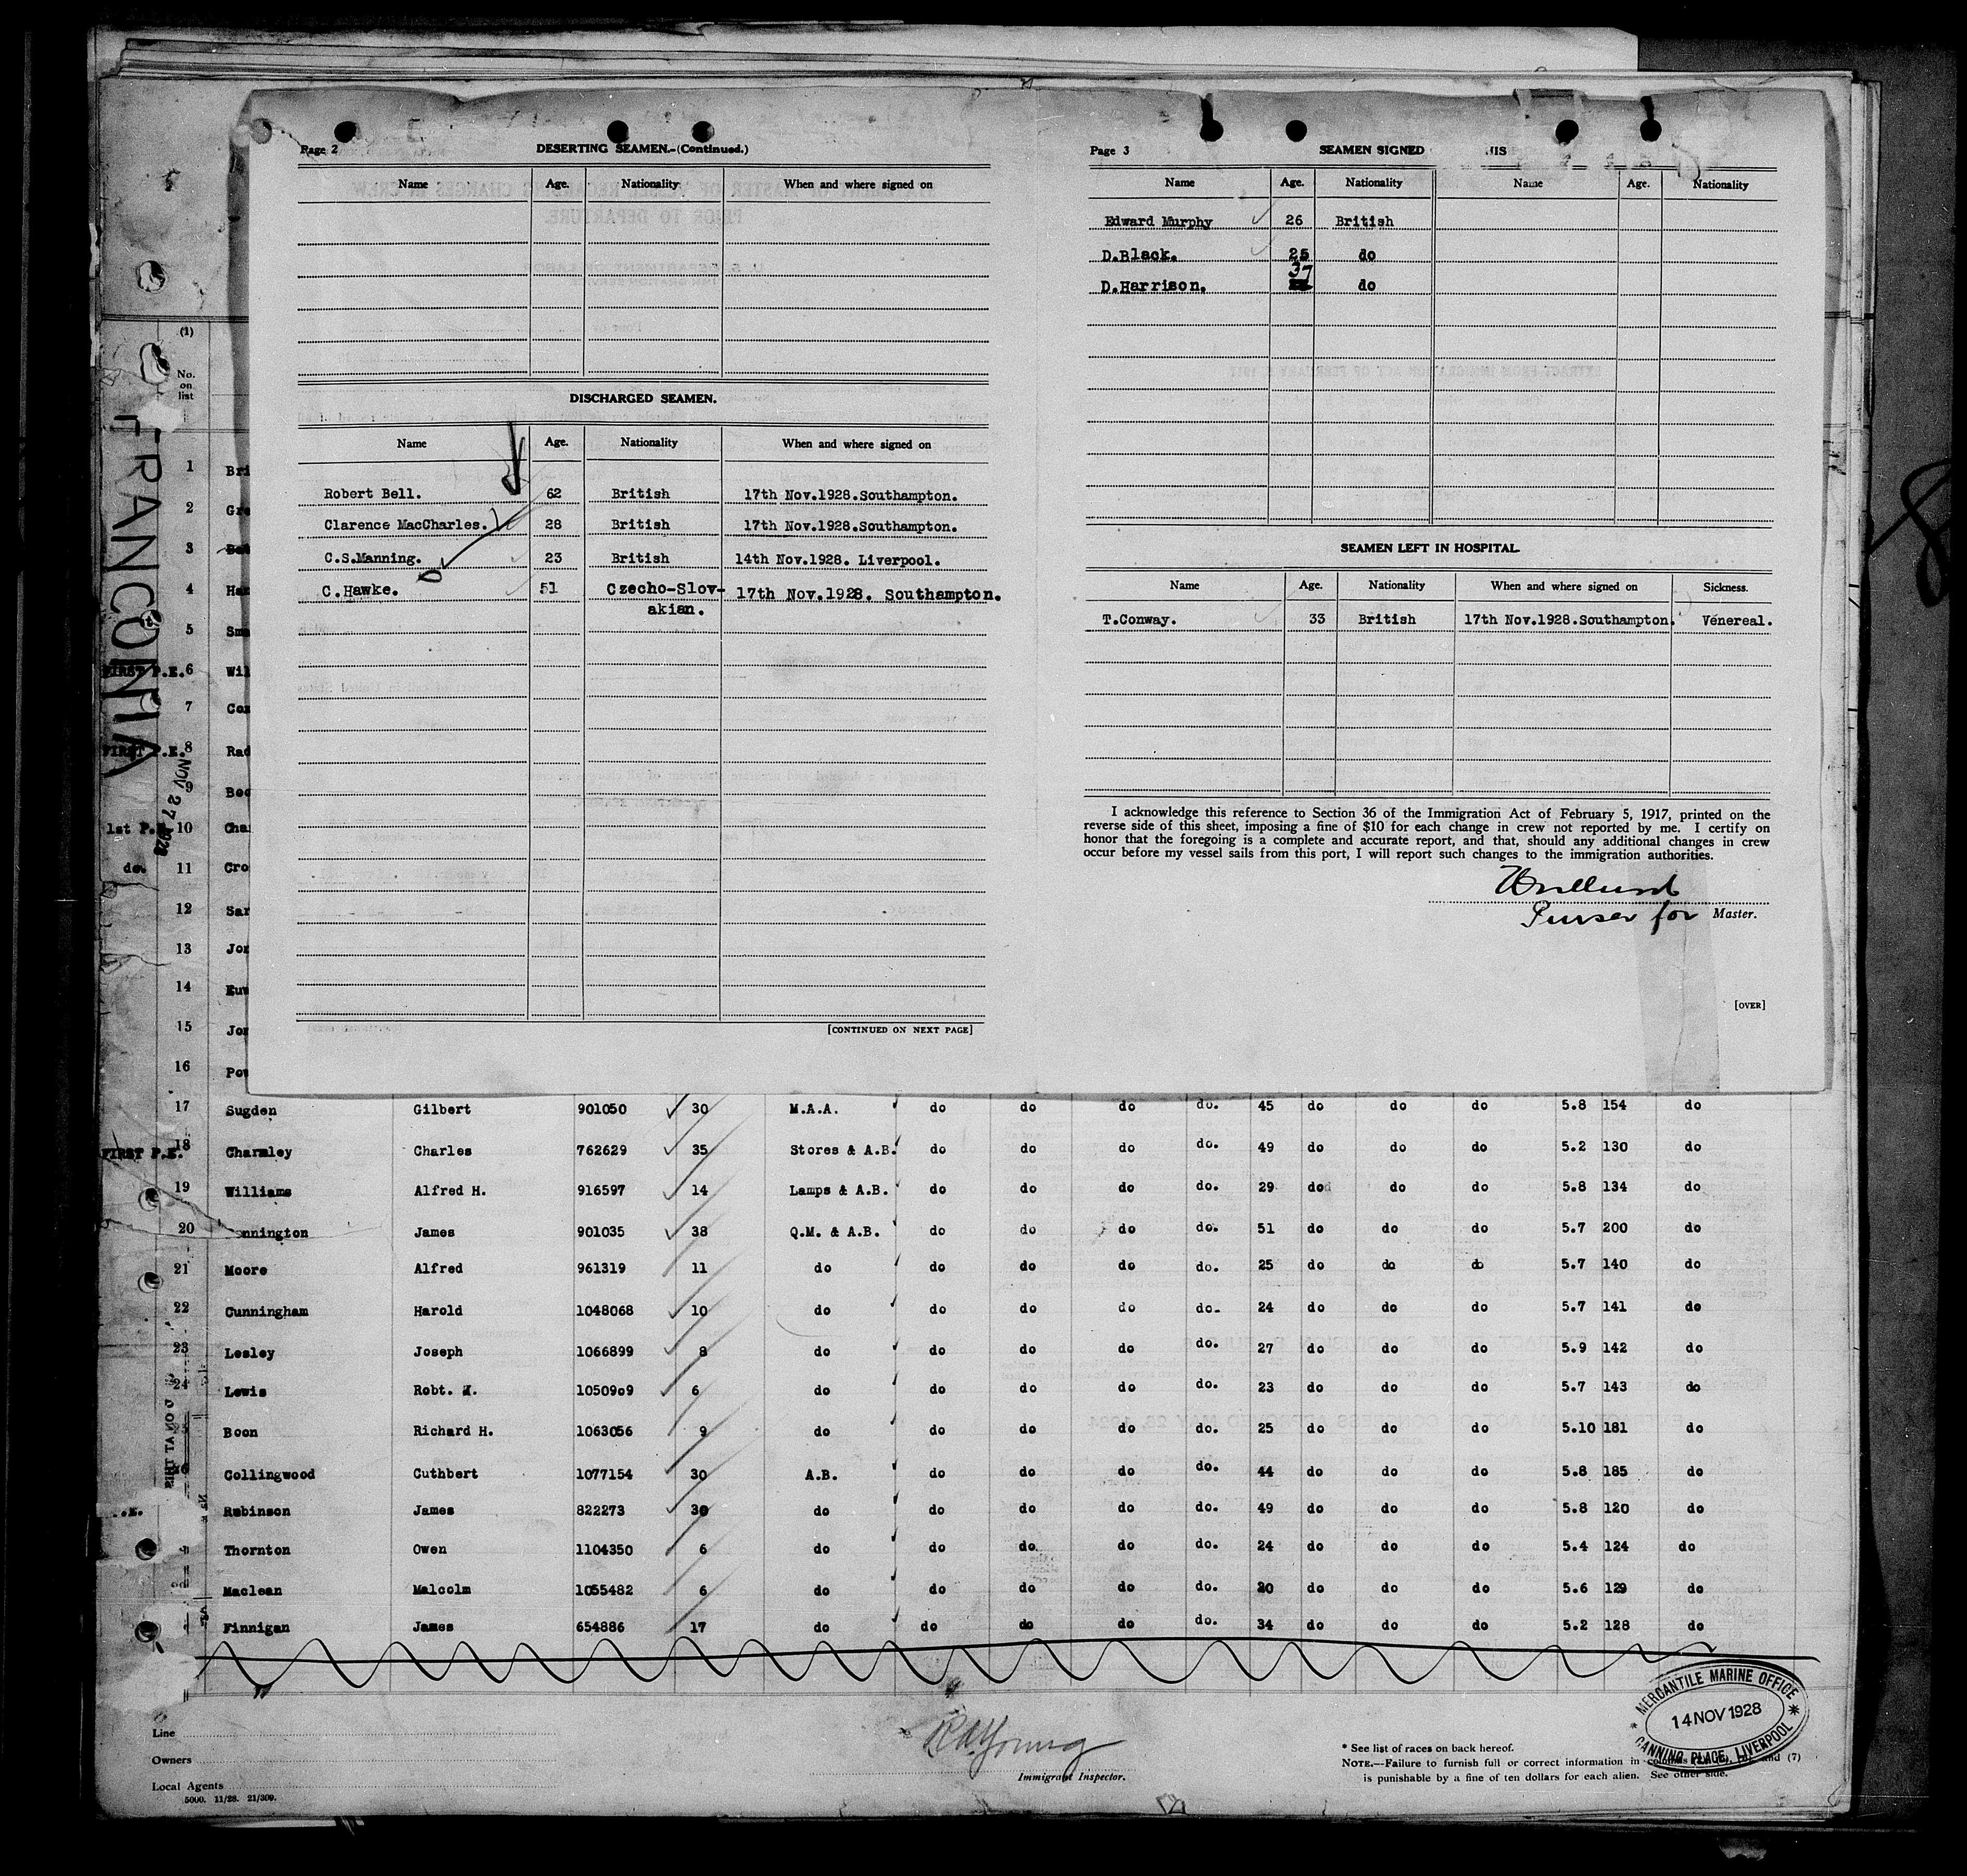 Page 2
DESERTING SEAMEN.-(Continued.)
Name Age. Nationality When and where signed on
DISCHARGED SEAMEN.
Name Age. Nationality When and where signed on
Robert Bell. 62 British 17th Nov.1928.Southampton.
Clarence MacCharles. 28 British 17th Nov.1928.Southampton.
C.S.Manning. 23 British 14th Nov.1928. Liverpool.
C.Hawke. 51 Czecho-Slov- 17th Nov.1928. Southampton.
akian.
[CONTINUED ON NEXT PAGE]
Page 3
SEAMEN SIGNED
Name Age. Nationality Name Age. Nationality
Edward Murphy 26 British
D.Black. 25 do
D.Harrison. 37 do
SEAMEN LEFT IN HOSPITAL.
Name Age. Nationality When and where signed on Sickness.
T.Conway. 33 British 17th Nov.1928.Southampton. Venereal.
I acknowledge this reference to Section 36 of the Immigration Act of February 5, 1917, printed on the
reverse side of this sheet, imposing a fine of $10 for each change in crew not reported by me. I certify on
honor that the foregoing is a complete and accurate report, and that, should any additional changes in crew
occur before my vessel sails from this port, I will report such changes to the immigration authorities.
Purser for Master.
[OVER]
FRANCONIA
NOV 27 1928
(1)
No.
on
list
1 Bri
2 Gre
3
4
5 Sma
FIRST P.E. 6 Wil
7 Cox
FIRST P.E. 8 Rad
9
1st P.E. 10 Cha
do. 11 Cro
12 Sar
13 Jon
14
15 Jon
16
17 Sugden Gilbert 901050 30 M.A.A. do do do do. 45 do do do 5.8 154 do
FIRST P.E. 18 Charmley Charles 762629 35 Stores & A.B. do do do do. 49 do do do 5.2 130 do
19 Williams Alfred H. 916597 14 Lamps & A.B. do do do do. 29 do do do 5.8 134 do
20 nnington James 901035 38 Q.M. & A.B. do do do do. 51 do do do 5.7 200 do
21 Moore Alfred 961319 11 do do do do do. 25 do do do 5.7 140 do
22 Cunningham Harold 1048068 10 do do do do do. 24 do do do 5.7 141 do
23 Lesley Joseph 1066899 8 do do do do do. 27 do do do 5.9 142 do
24 Lewis Robt. 1050909 6 do do do do do. 23 do do do 5.7 143 do
Boon Richard H. 1063056 9 do do do do do. 25 do do do 5.10 181 do
Collingwood Cuthbert 1077154 30 A.B. do do do do. 44 do do do 5.8 185 do
Robinson James 822273 30 do do do do do. 49 do do do 5.8 120 do
Thornton Owen 1104350 6 do do do do do. 24 do do do 5.4 124 do
Maclean Malcolm 1055482 6 do do do do do. 20 do do do 5.6 129 do
Finnigan James 654886 17 do do do do do. 34 do do do 5.2 128 do
Line
Owners
Local Agents
5000. 11/28. 21/309.
Young
Immigrant Inspector.
* See list of races on back hereof.
NOTE.—Failure to furnish full or correct information in columns and (7)
is punishable by a fine of ten dollars for each alien. See other side.
MERCANTILE MARINE OFFICE
14 NOV 1928
CANNING PLACE, LIVERPOOL